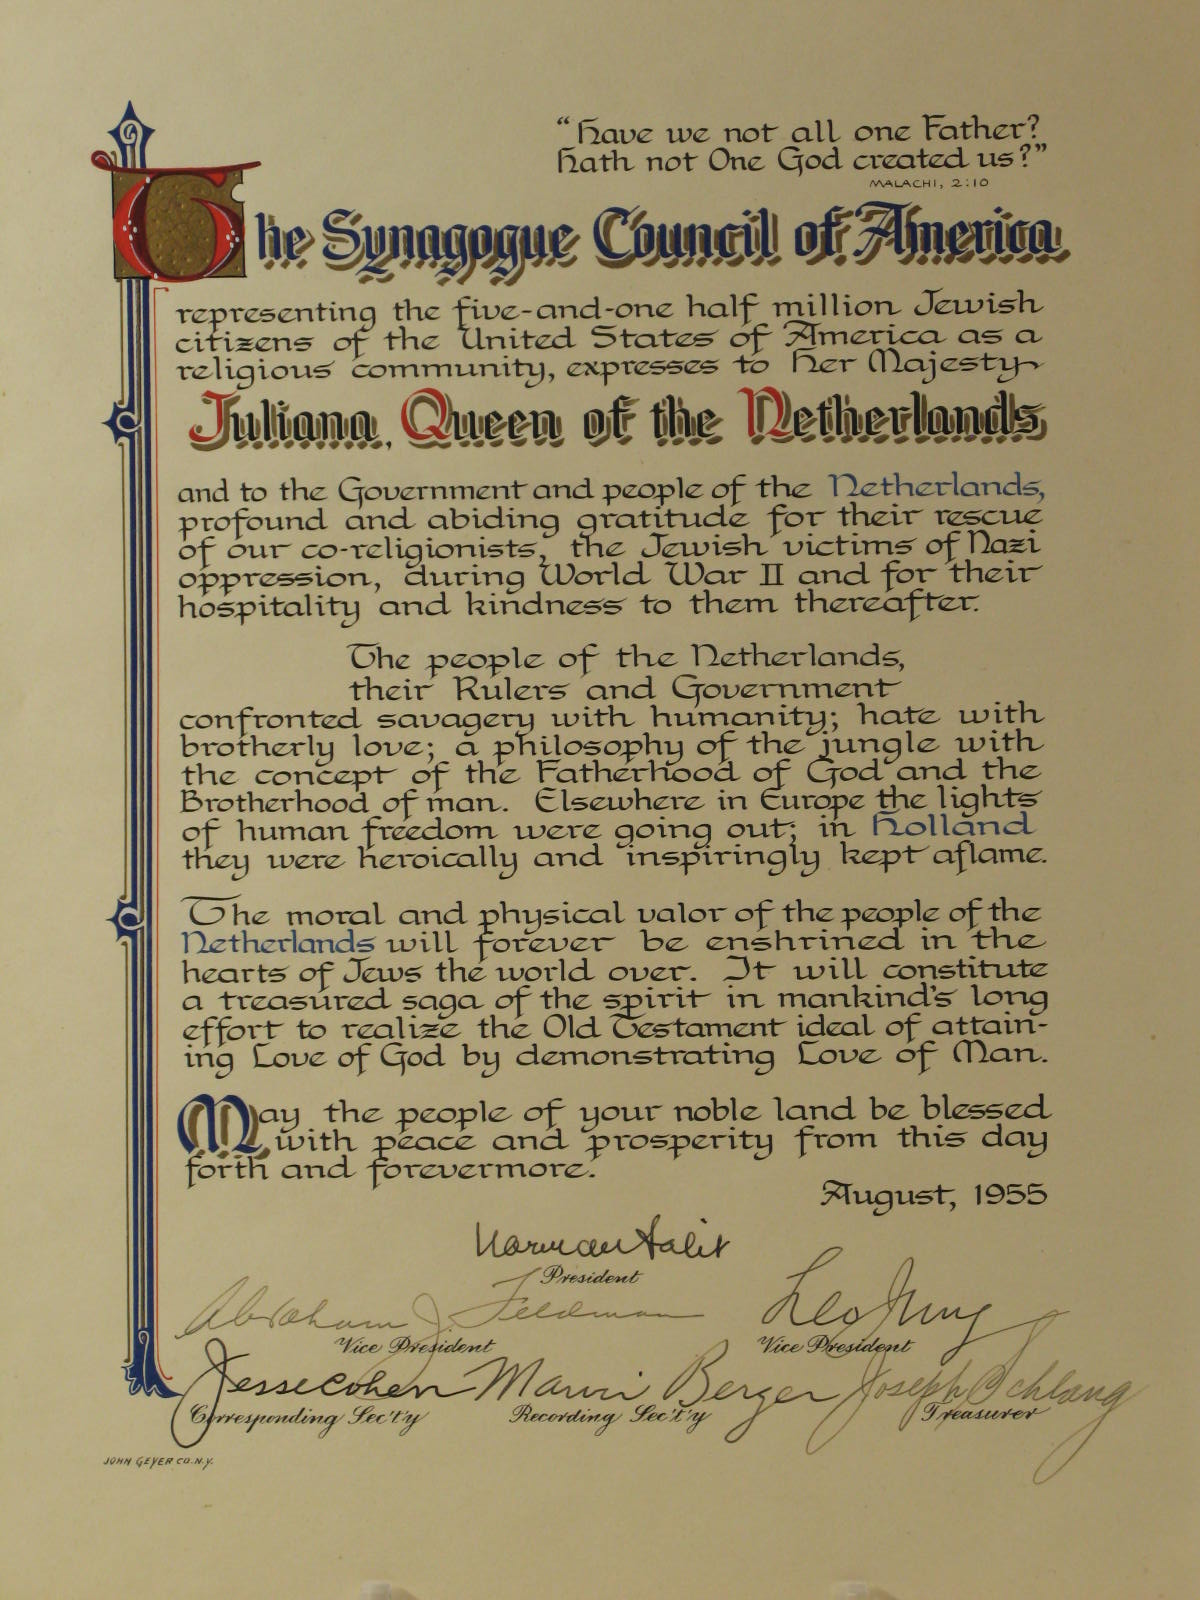 "Have we not all one Father?
Hath not One God created us?"
MALACHI, 2:10
The Synagogue Council of America
representing the five-and-one half million Jewish
citizens of the United States of America as a
religious community, expresses to Her Majesty
Juliana, Queen of the Netherlands
and to the Government and people of the Netherlands,
profound and abiding gratitude for their rescue
of our co-religionists, the Jewish victims of Nazi
oppression, during World War II and for their
hospitality and kindness to them thereafter.
The people of the Netherlands,
their Rulers and Government
confronted savagery with humanity; hate with
brotherly love; a philosophy of the jungle with
the concept of the Fatherhood of God and the
Brotherhood of man. Elsewhere in Europe the lights
of human freedom were going out; in Holland
they were heroically and inspiringly kept aflame.
The moral and physical valor of the people of the
Netherlands will forever be enshrined in the
hearts of Jews the world over. It will constitute
a treasured saga of the spirit in mankind's long
effort to realize the Old Testament ideal of attain-
ing Love of God by demonstrating Love of Man.
May the people of your noble land be blessed
with peace and prosperity from this day
forth and forevermore.
August, 1955
Norman Salit
President
Abraham J. Feldman Leo Jung
Vice President Vice President
Jesse Cohen Marvin Berger Joseph Schlang
Corresponding Sec't'y Recording Sec't'y Treasurer
JOHN GEYER CO. N.Y.